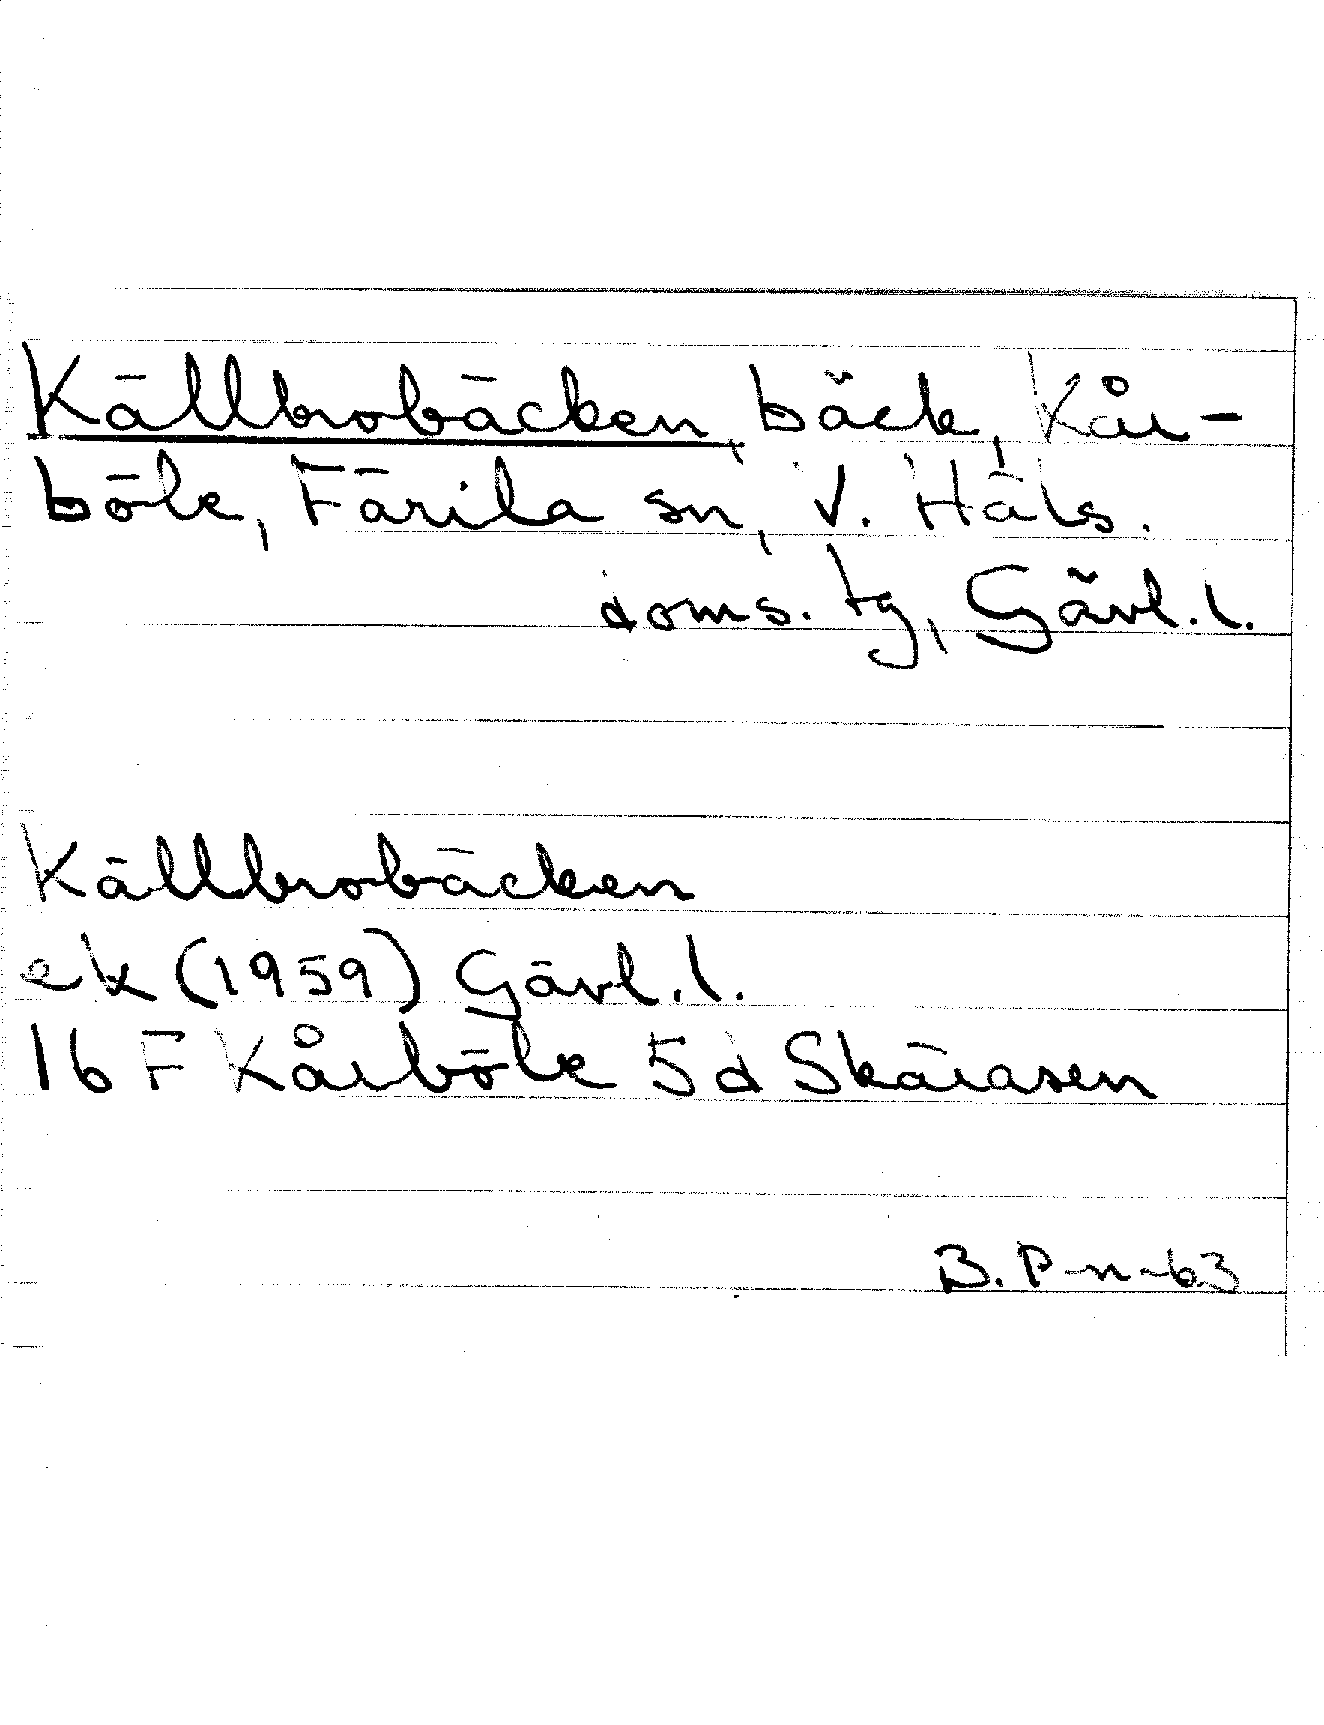 Källbrobäcken, bäck, Kår-
böle, Färila sn, V. Häls.
doms. tg, Gävl. l.
Källbrobäcken
ek (1959) Gävl. l.
16 F Kårböle 5d Skäråsen
B. P-n-63